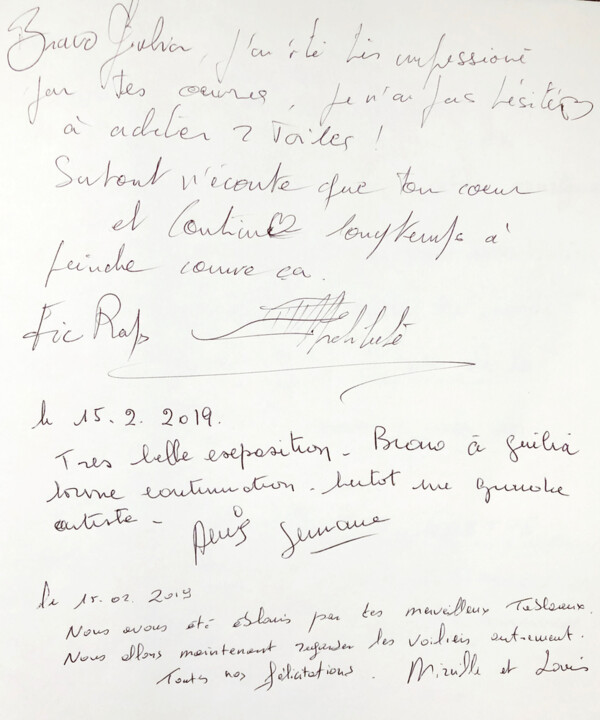 Bravo Giulia, j'ai été très impressioné
par tes oeuvres, je n'ai pas hésité
à acheter 2 Toiles !
Surtout n'écoute que ton coeur
et Continue longtemps à
peindre comme ça.
Eric
le 15.2.2019.
Tres belle exposition. Bravo à Giulia
bonne continuation. bientot une grande
artiste -
Germaine
le 15.02.2019
Nous avons été éblouis par tes merveilleux Tableaux.
Nous allons maintenant regarder les voiliers autrement.
Toutes nos félicitations. Mireille et Louis